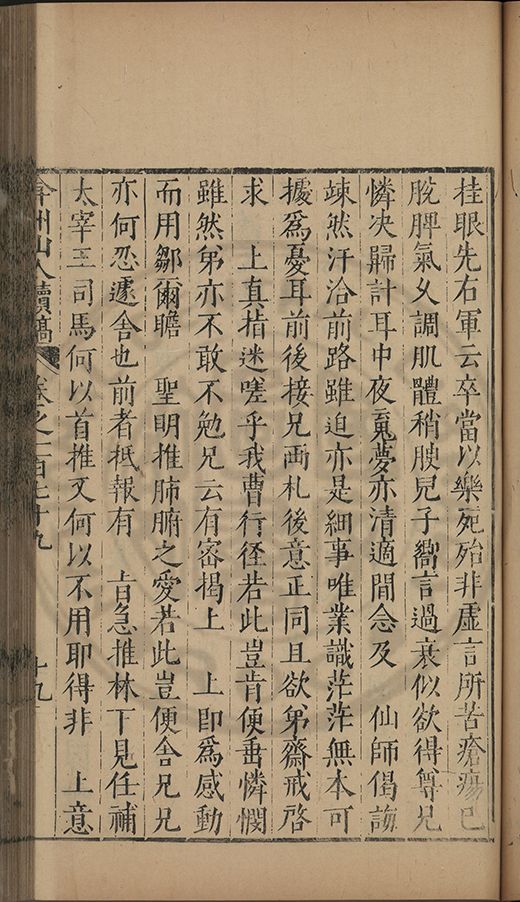 桂眼先右軍云卒當以樂死殆非虛言所苦瘡瘍已
脫脾氣乆調肌體稍腴兒子衡言過衰似欲得尊兄
憐决歸計耳中夜寬夢亦清適間念及　仙師偈
竦然汗洽前路雖迫亦是細事唯業識茫茫無本可
據爲憂耳前後接兄两札後意正同且欲弟齋戒啓
求　上真指迷嗟乎我曹行徑若此豈肯便垂憐憫
雖然弟亦不敢不勉兄云有密揭上　上即爲感動
而用鄒爾瞻　聖明推肺腑之愛若此豈便舍兄兄
亦何忍遽舍也前者抵報有　旨急推林下見任補
太宰王司馬何以首推又何以不用耶得非　上意
弇州山人續稿　卷之一百七十九　十九